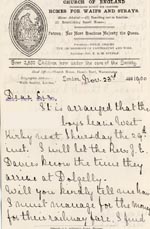 CHURCH OF ENGLAND
HOMES FOR WAIFS AND STRAYS
Patron, Her Most Gracious Majesty the Queen.
Over 2,500 Children now under the care of the Society.
London, Nov. 23rd 1900
Dear Sir,
It is arranged that the
boys leave West
Kirby next Thursday the 29th
inst. I will let the Rev. J. E.
Davies know the time they
arrive at Dolgelly.
Will you kindly tell me how
I must manage for the money
for their railway fare. I find